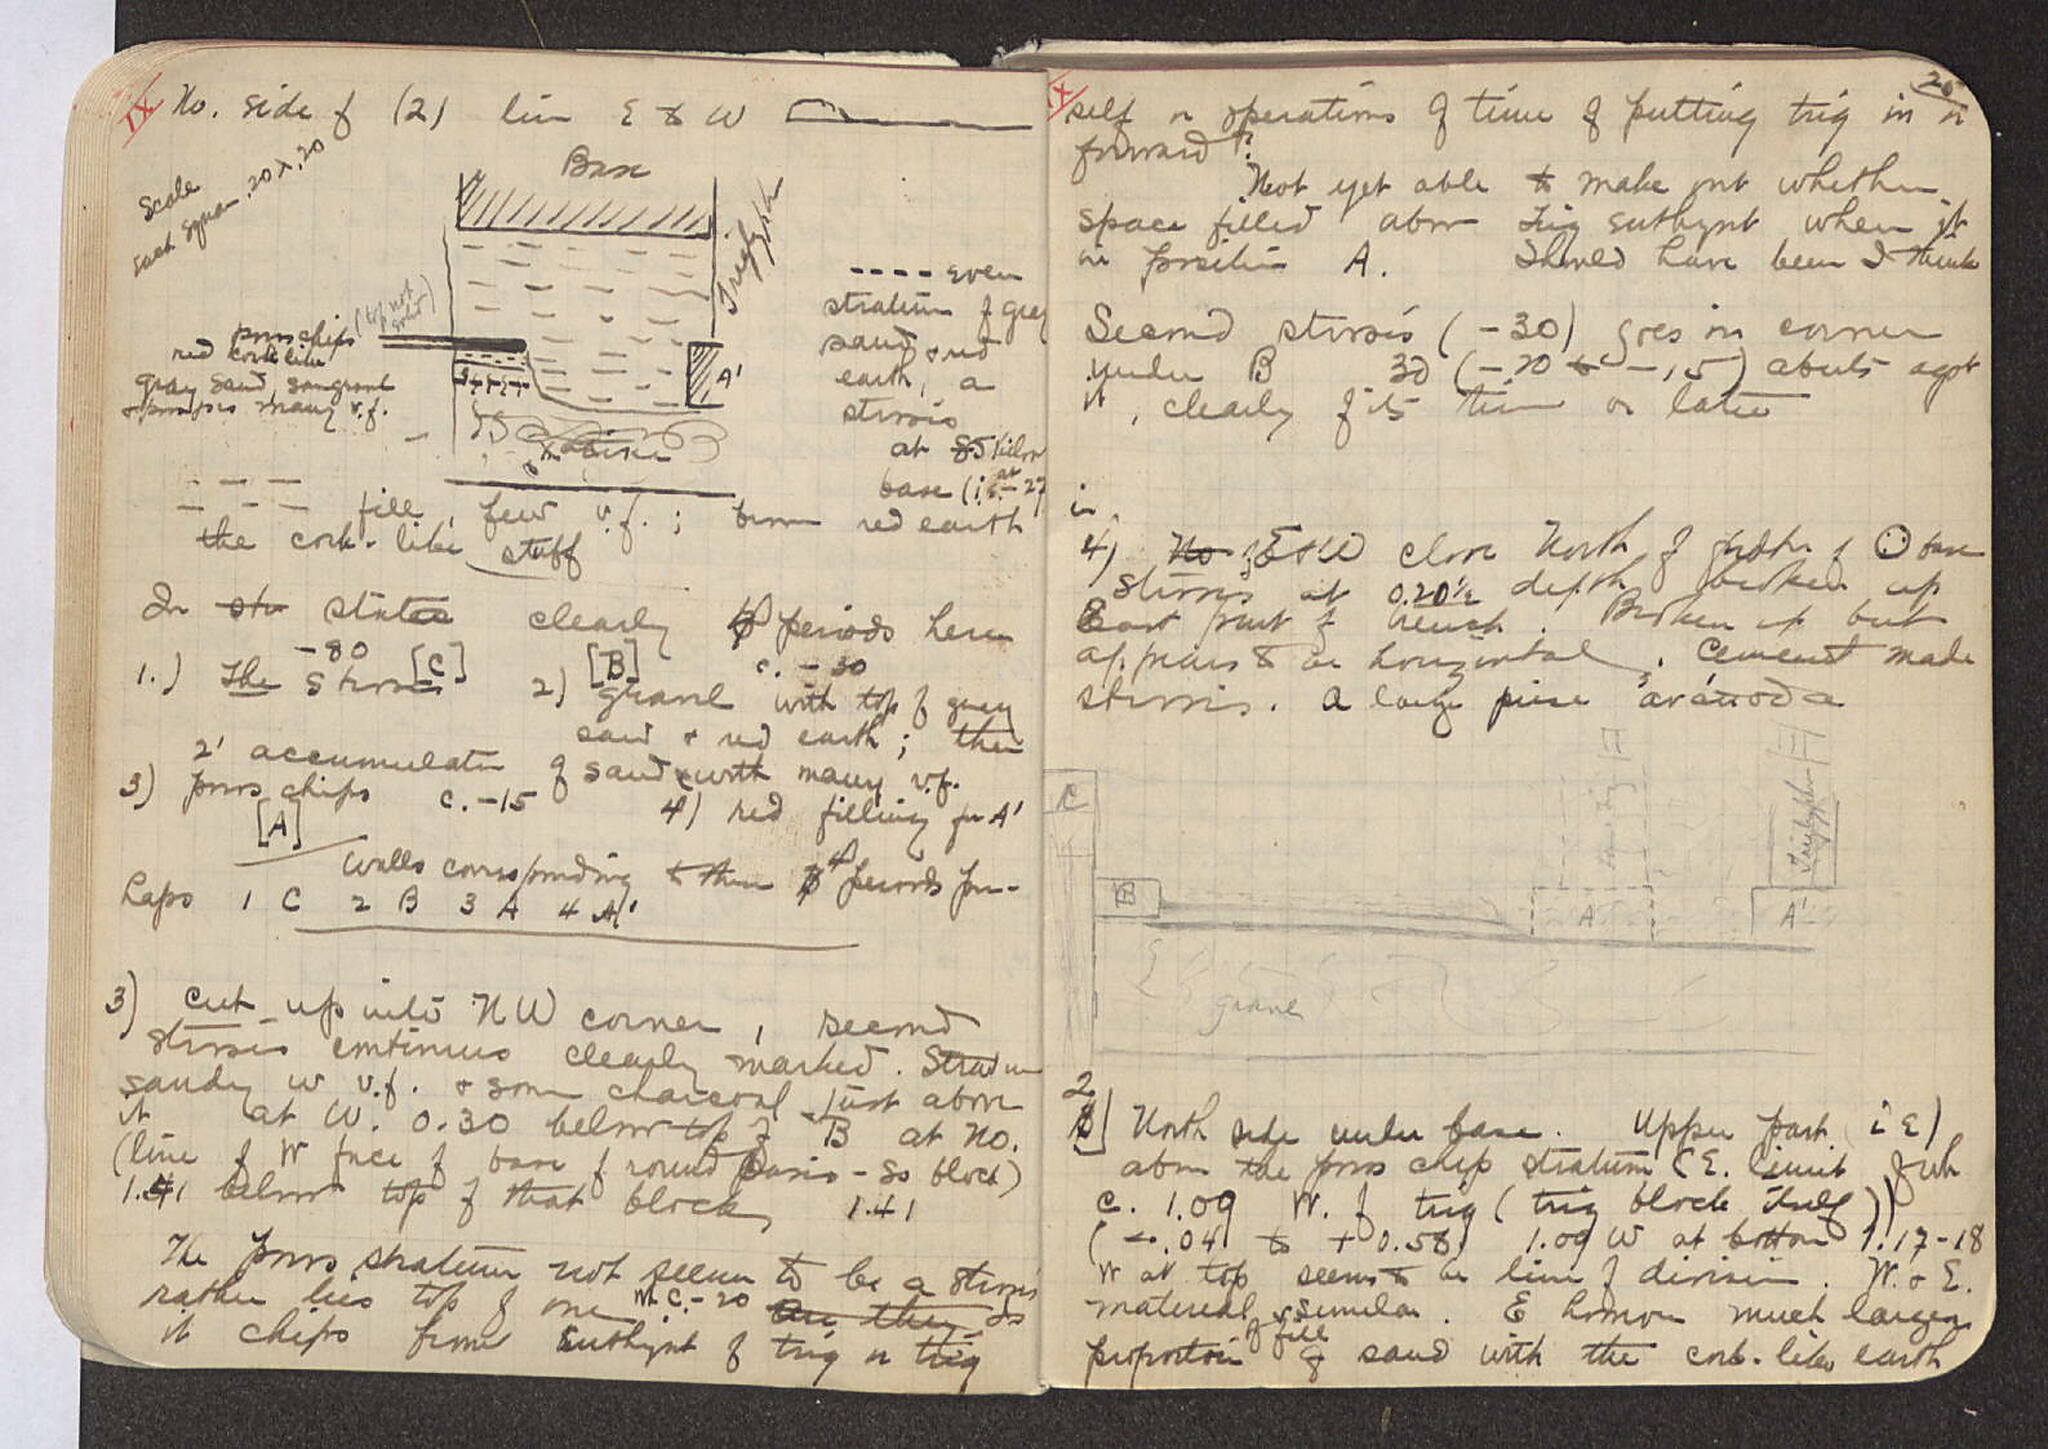 IX
No. side of (2) line E & W
Scale
each square .20 x .20
Base
Triglyph
A'
poros chips (top not
solid)
red cork like
gray sand,
many v.f.
---- even
stratum of grey
sand & red
earth, a
stirosis
at 85 below
base (i.e. -27
fill, few v.f.; brown red earth
the cork-like stuff
In states clearly 4 periods here
1.) The Stirosis -80 [C] 2) [B] c. -30
gravel with top of gray
sand & red earth; then
2' accumulation of sand with many v.f.
3) poros chips c. -15 4) red filling for A'
[A]
Walls corresponding to these 4 periods per-
haps 1 C 2 B 3 A 4 A'
3) Cut up into NW corner, second
stirosis continues clearly marked. Stratum
sandy w v.f. & some charcoal just above
it at W. 0.30 below top of B at No.
(line of W face of base of round basis - So block)
1.41 below top of that block, 1.41
The poros stratum not seem to be a stirosis
rather lies top of one W c. -20 Are they Is
it chips from euthynt of trig or trig
IX
20
self or operations of time of putting trig in or
forward?
Not yet able to make out whether
space filled above trig euthynt when it
in position A. Should have been I think
Second stirosis (-30) goes in corner
under B 30 (-20 to -.15) abuts agst
it, clearly of its time or later
in
4) No E & W close North of base
stirosis at 0.20½ depth, broken up
East part of trench. Broken up but
appears to be horizontal. Cement made
stirosis. A large piece ἀνάποδα
C
B
A
A'
Triglyphon
gravel
2
B] North side under base. Upper part (i E)
above the poros chip stratum (E. limit of wh
c. 1.09 W. of trig (trig block itself))
(-.04 to + 0.58) 1.09 W at bottom 1.17-18
W at top seems to be line of division. W. & E.
material similar. E however much larger
proportion of fill & sand with the cork-like earth